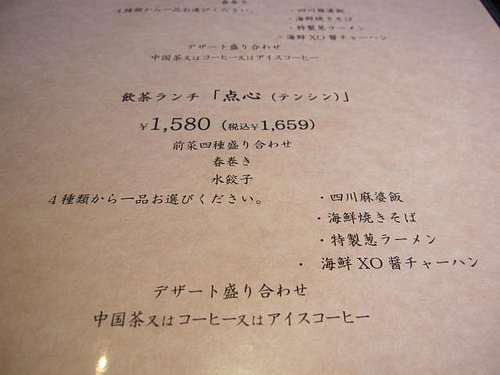 春巻き
4種類から一品お選びください。
・四川麻婆飯
・海鮮焼きそば
・特製葱ラーメン
・海鮮XO醤チャーハン
デザート盛り合わせ
中国茶又はコーヒー又はアイスコーヒー
飲茶ランチ「点心（テンシン）」
¥1,580（税込¥1,659）
前菜四種盛り合わせ
春巻き
水餃子
4種類から一品お選びください。
・四川麻婆飯
・海鮮焼きそば
・特製葱ラーメン
・海鮮XO醤チャーハン
デザート盛り合わせ
中国茶又はコーヒー又はアイスコーヒー